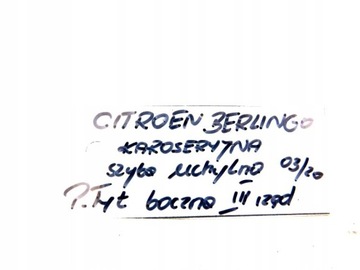 CITROEN BERLINGO
KAROSERYJNA
szyba uchylna 03/20
P. Tyt boczna III rząd